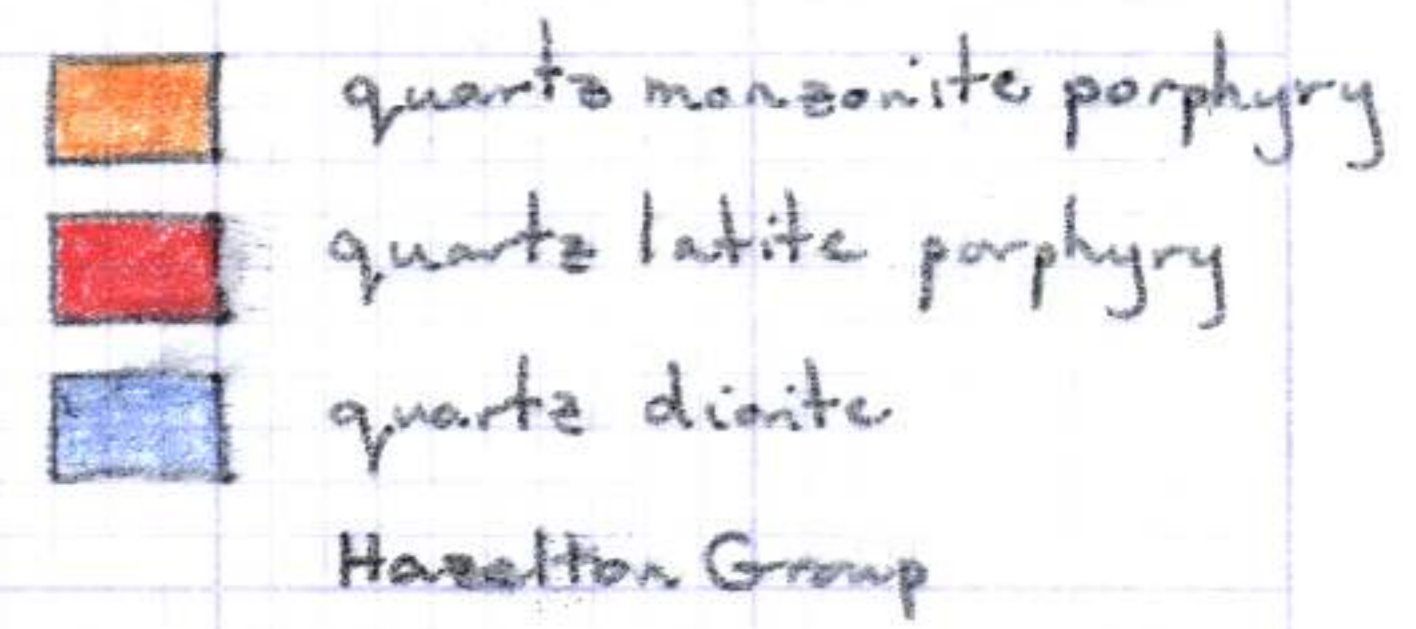 quartz monzonite porphyry
quartz latite porphyry
quartz diorite
Hazelton Group